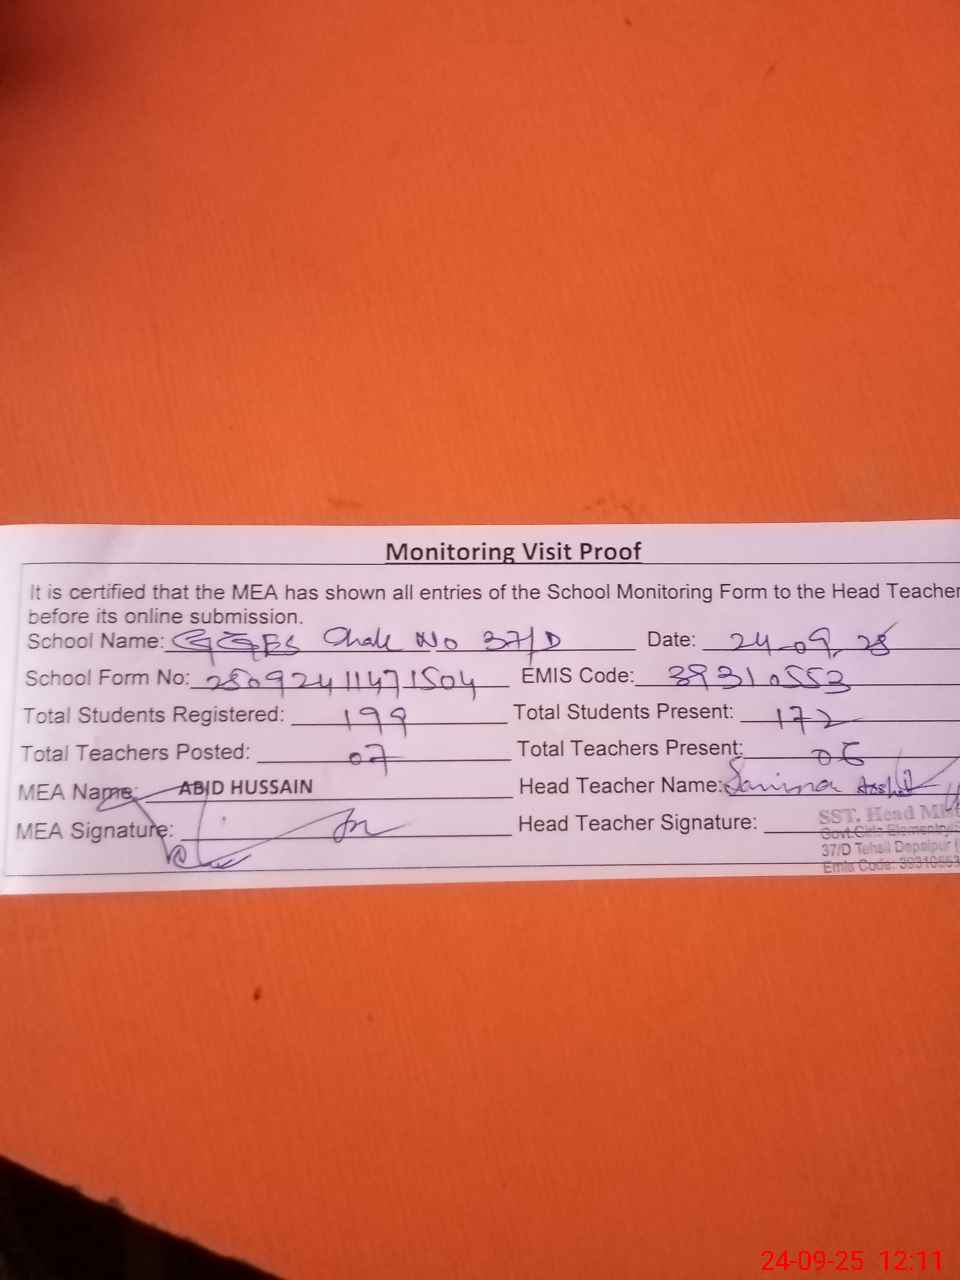 Monitoring Visit Proof
It is certified that the MEA has shown all entries of the School Monitoring Form to the Head Teacher
before its online submission.
School Name: GGES Chak No 37/D Date: 24-09-25
School Form No: 25092411471504 EMIS Code: 39310553
Total Students Registered: 199 Total Students Present: 172
Total Teachers Posted: 07 Total Teachers Present: 06
MEA Name: ABID HUSSAIN Head Teacher Name: Arshad
MEA Signature: Head Teacher Signature:
SST, Head
Govt. Girls Elementry
37/D Tehsil Depalpur
Emis Code: 39310553
24-09-25 12:11